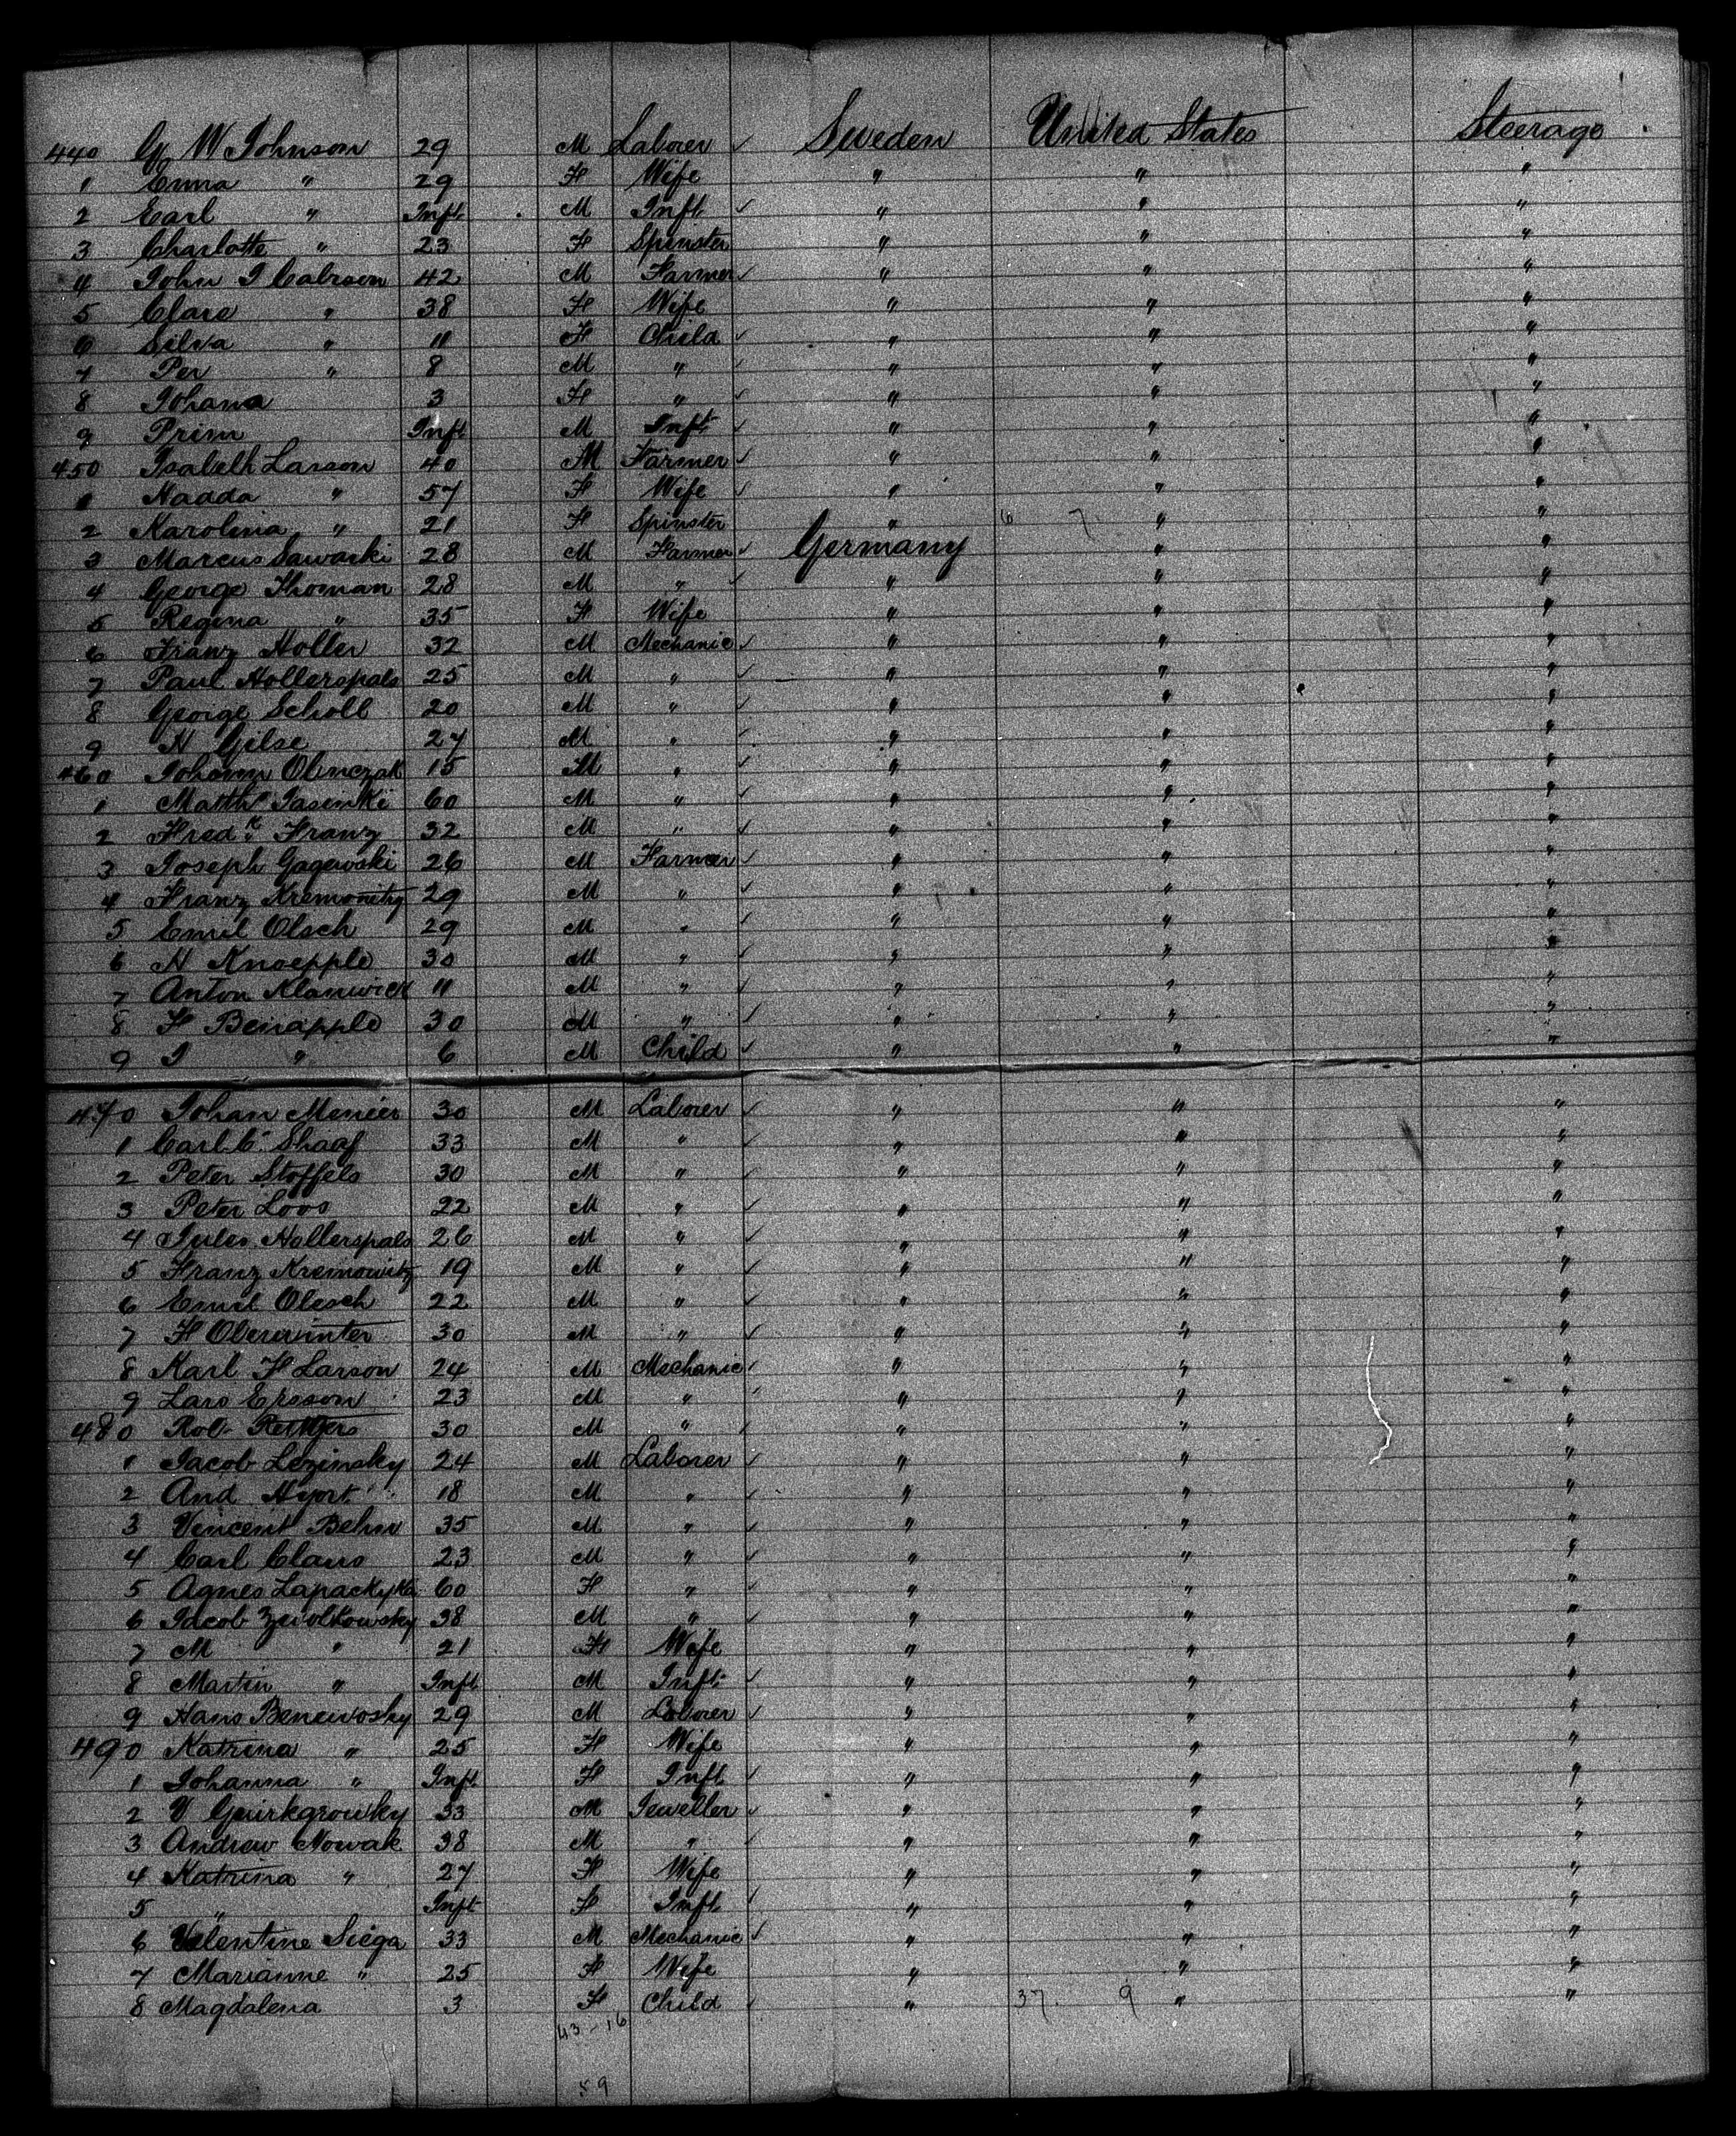 440 G W Johnson 29 M Laborer ✓ Sweden United States Steerage
1 Emma " 29 F Wife " " "
2 Earl " Inft. M Inft ✓ " " "
3 Charlotte " 23 F Spinster " " "
4 John J Calrson 42 M Farmer ✓ " " "
5 Clare " 38 F Wife " " "
6 Silva " 11 F Child ✓ " " "
7 Per " 8 M " ✓ " " "
8 Johana 3 F " ✓ " " "
9 Prim Inft M Inft ✓ " " "
450 Isabelh Larson 40 M Farmer ✓ " " "
1 Hadda " 57 F Wife ✓ " " "
2 Karolina " 21 F Spinster " 6 7 " "
3 Marcus Sawacki 28 M Farmer ✓ Germany " "
4 George Thoman 28 M " ✓ " " "
5 Regina " 35 F Wife " " "
6 Franz Holler 32 M Mechanic ✓ " " "
7 Paul Hollerspals 25 M " ✓ " " "
8 George Scholl 20 M " ✓ " " "
9 H Gilse 27 M " ✓ " " "
460 Johann Olinczak 15 M " ✓ " " "
1 Matth Jasinki 60 M " ✓ " " "
2 Fredk Franz 32 M " ✓ " " "
3 Joseph Gagewski 26 M Farmer ✓ " " "
4 Franz Kremonitz 29 M " ✓ " " "
5 Emil Olsch 29 M " ✓ " " "
6 H Knoepple 30 M " ✓ " " "
7 Anton Klanwick 11 M " ✓ " " "
8 F Beinapple 30 M " ✓ " " "
9 J " 6 M Child ✓ " " "
470 Johan Menier 30 M Laborer ✓ " " "
1 Carl C Shaaf 33 M " ✓ " " "
2 Peter Stoffels 30 M " ✓ " " "
3 Peter Loos 22 M " ✓ " " "
4 Jules Hollerspals 26 M " ✓ " " "
5 Franz Kremowitz 19 M " ✓ " " "
6 Emil Olesch 22 M " ✓ " " "
7 F Oberwinter 30 M " ✓ " " "
8 Karl F Larson 24 M Mechanic ✓ " " "
9 Lars Ersson 23 M " ✓ " " "
480 Rob Rettgers 30 M " ✓ " " "
1 Jacob Lezinsky 24 M Laborer ✓ " " "
2 And Hyort 18 M " ✓ " " "
3 Vincent Behm 35 M " ✓ " " "
4 Carl Claus 23 M " ✓ " " "
5 Agnes 60 F " ✓ " " "
6 Jacob Zwolkowsky 38 M " ✓ " " "
7 M " 21 F Wife " " "
8 Martin " Inft M Inft ✓ " " "
9 Hans Benewosky 29 M Laborer ✓ " " "
490 Katrina " 25 F Wife " " "
1 Johanna " Inft F Inft ✓ " " "
2 V Guirkgrowky 33 M Jeweller ✓ " " "
3 Andrew Nowak 38 M " ✓ " " "
4 Katrina " 27 F Wife " " "
5 " Inft F Inft ✓ " " "
6 Valentine Siega 33 M Mechanic ✓ " " "
7 Marianne " 25 F Wife " " "
8 Magdalena 3 F Child ✓ " 37. 9 " "
43 - 16
59